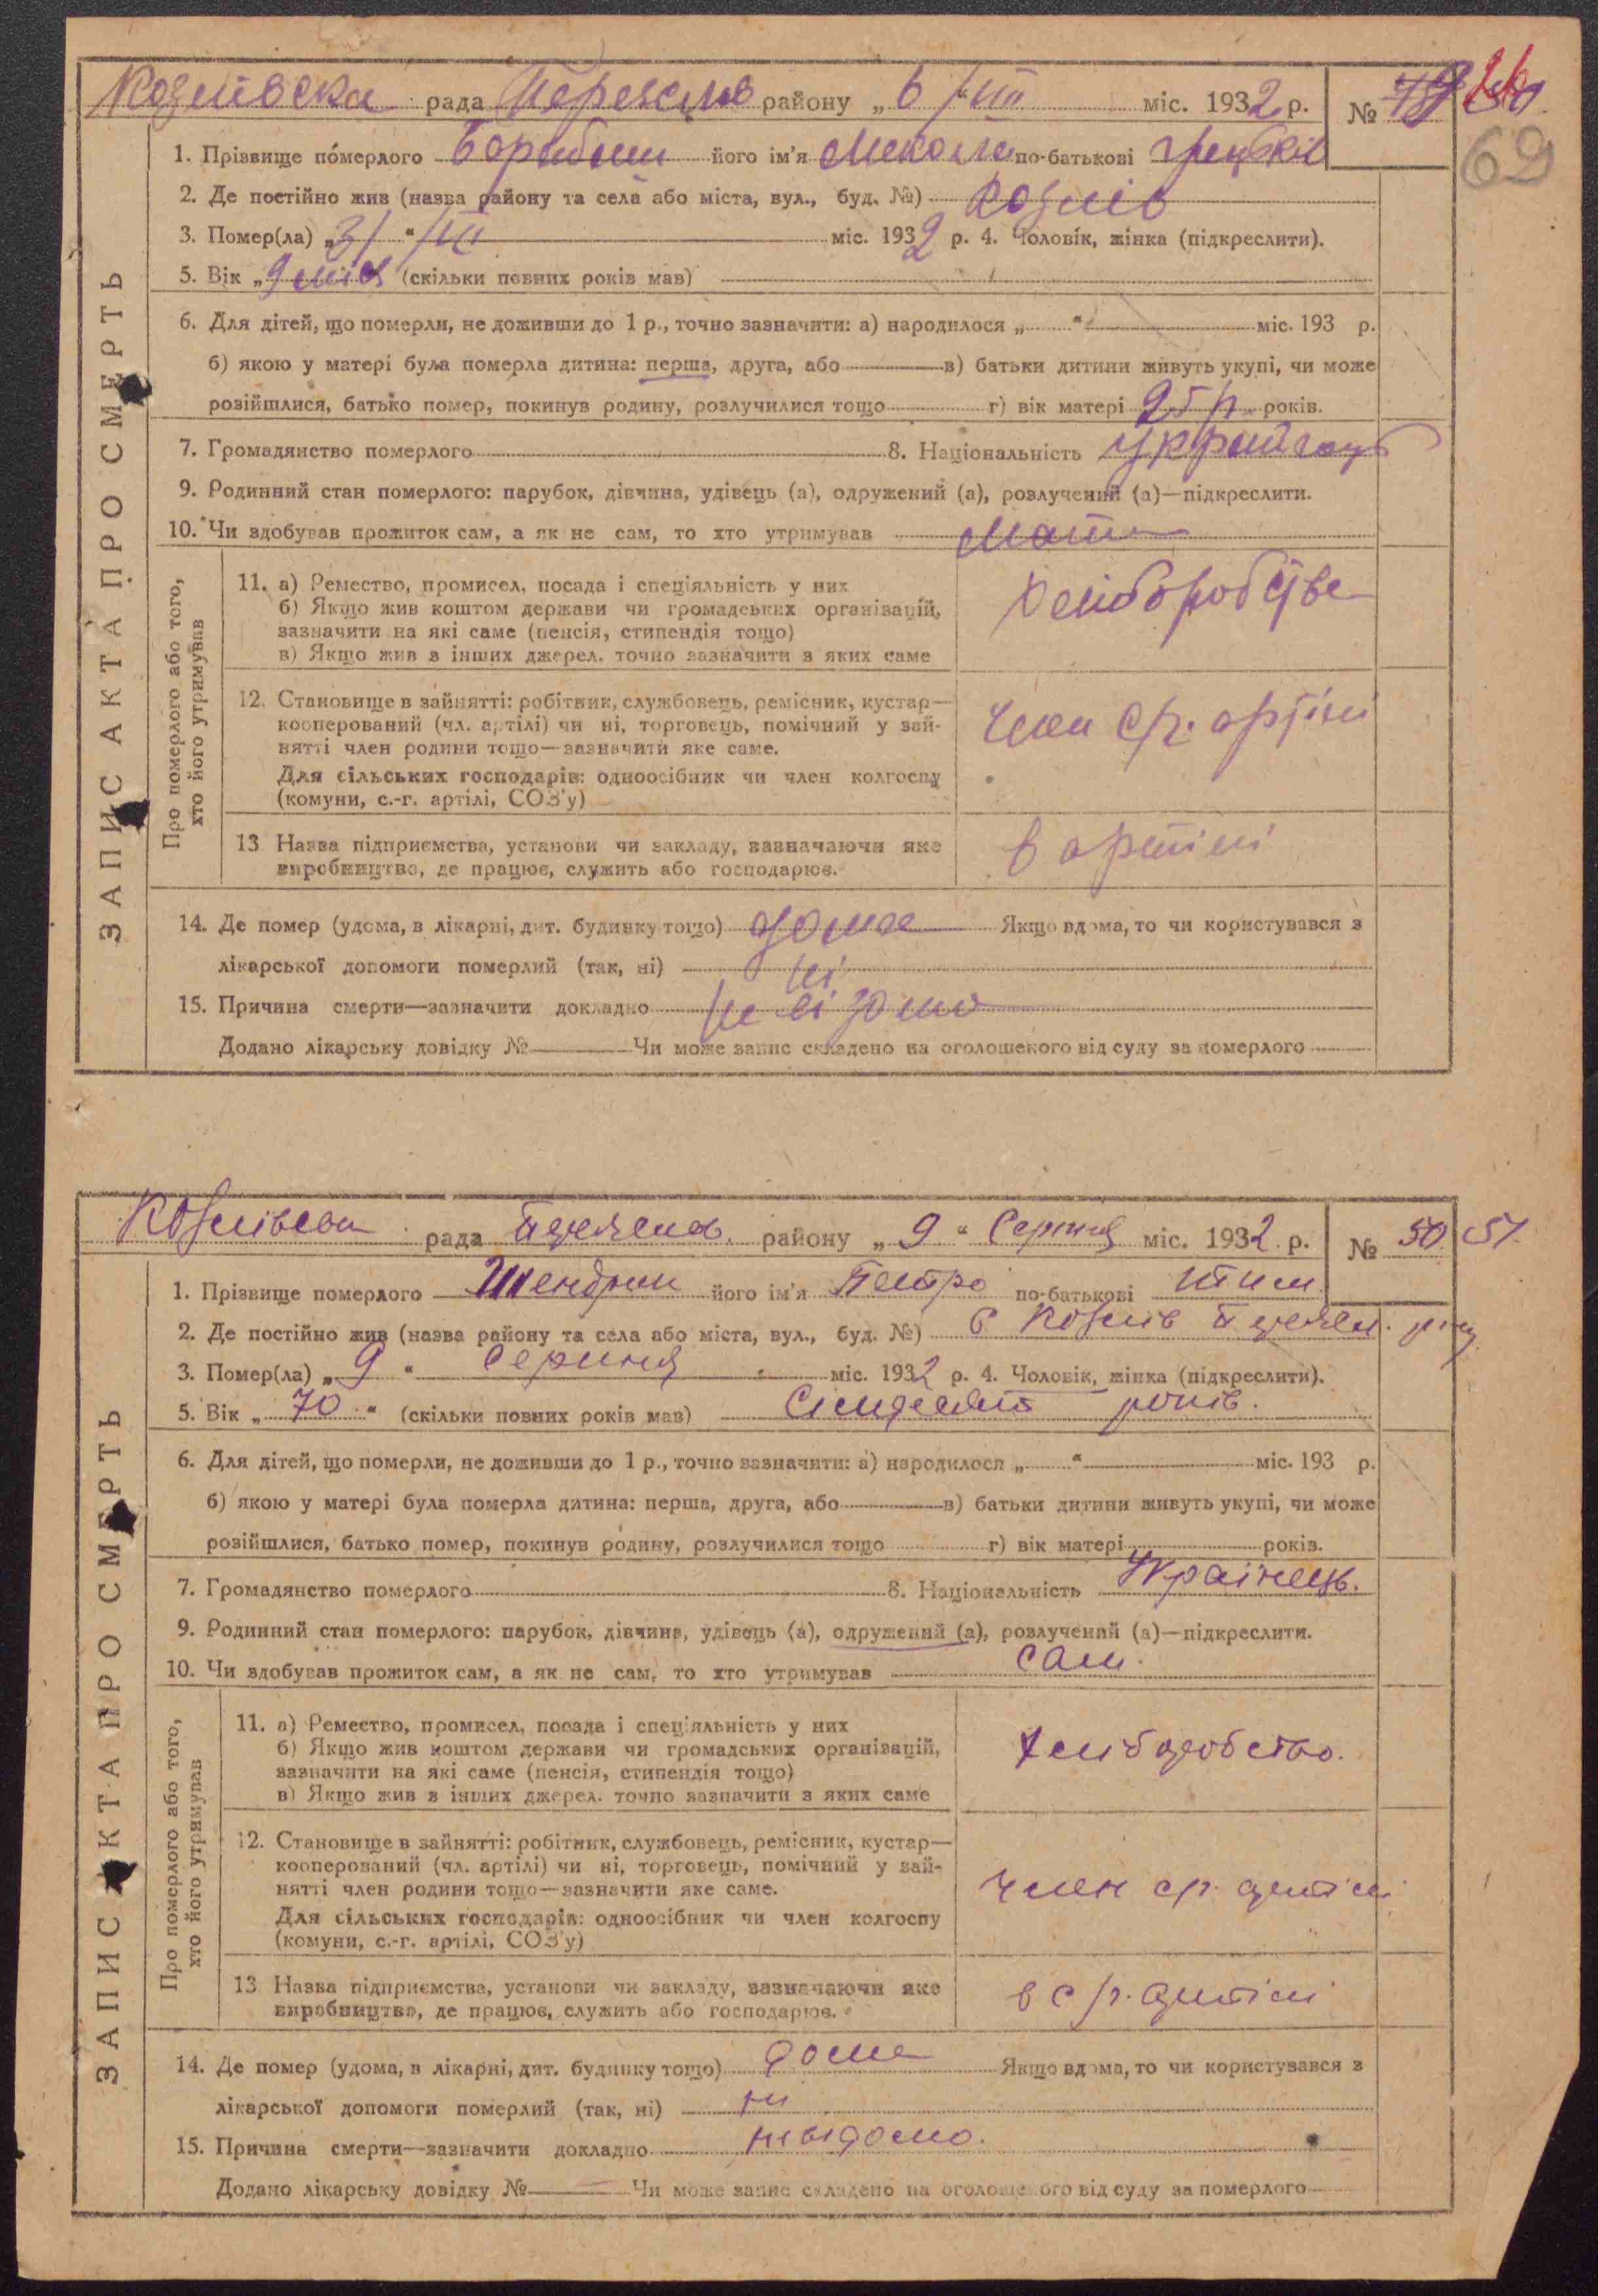 Козлівська рада Переяслів району „6 /VIII міс. 1932 р. № 79
69
ЗАПИС АКТА ПРО СМЕРТЬ
1. Прізвище померлого його ім'я Микола по-батькові
2. Де постійно жив (назва району та села або міста, вул., буд. №) Козлів
3. Помер(ла) „31 “ /VII міс. 1932 р. 4. Чоловік, жінка (підкреслити).
5. Вік „9 міс (скільки повних років мав)
6. Для дітей, що померли, не доживши до 1 р., точно зазначити: а) народилося „ “ міс. 193 р.
б) якою у матері була померла дитина: перша, друга, або в) батьки дитини живуть укупі, чи може
розійшлися, батько помер, покинув родину, розлучилися тощо г) вік матері 25 р. років.
7. Громадянство померлого 8. Національність українець
9. Родинний стан померлого: парубок, дівчина, удівець (а), одружений (а), розлучений (а)—підкреслити.
10. Чи здобував прожиток сам, а як не сам, то хто утримував Мати
Про померлого або того,
хто його утримував
11. а) Ремество, промисел, посада і спеціяльність у них
б) Якщо жив коштом держави чи громадських організацій,
зазначити на які саме (пенсія, стипендія тощо)
в) Якщо жив з інших джерел. точно зазначити з яких саме
хліборобство
12. Становище в зайнятті: робітник, службовець, ремісник, кустар—
кооперований (чл. артілі) чи ні, торговець, помічний у зай-
нятті член родини тощо—зазначити яке саме.
Для сільських господарів: одноосібник чи член колгоспу
(комуни, с.-г. артілі, СОЗ'у)
член с/г. артілі
13 Назва підприємства, установи чи закладу, зазначаючи яке
виробництво, де працює, служить або господарює.
в артілі
14. Де помер (удома, в лікарні, дит. будинку тощо) дома Якщо вдома, то чи користувався з
лікарської допомоги померлий (так, ні) ні
15. Причина смерти—зазначити докладно невідомо
Додано лікарську довідку № Чи може запис складено на оголошеного від суду за померлого
Козлівська рада Переяслав. району „ 9 “ Серпня міс. 1932 р. № 50 51.
ЗАПИС АКТА ПРО СМЕРТЬ
1. Прізвище померлого його ім'я Петро по-батькові
2. Де постійно жив (назва району та села або міста, вул., буд. №) с Козлів Переясл. р-ну
3. Помер(ла) „ 9 “ Серпня міс. 1932 р. 4. Чоловік, жінка (підкреслити).
5. Вік „ 70 “ (скільки повних років мав) Сімдесят років.
6. Для дітей, що померли, не доживши до 1 р., точно зазначити: а) народилося „ “ міс. 193 р.
б) якою у матері була померла дитина: перша, друга, або в) батьки дитини живуть укупі, чи може
розійшлися, батько помер, покинув родину, розлучилися тощо г) вік матері років.
7. Громадянство померлого 8. Національність Українець.
9. Родинний стан померлого: парубок, дівчина, удівець (а), одружений (а), розлучений (а)—підкреслити.
10. Чи здобував прожиток сам, а як не сам, то хто утримував сам.
Про померлого або того,
хто його утримував
11. а) Ремество, промисел, посада і спеціяльність у них
б) Якщо жив коштом держави чи громадських організацій,
зазначити на які саме (пенсія, стипендія тощо)
в) Якщо жив з інших джерел. точно зазначити з яких саме
хліборобство.
12. Становище в зайнятті: робітник, службовець, ремісник, кустар—
кооперований (чл. артілі) чи ні, торговець, помічний у зай-
нятті член родини тощо—зазначити яке саме.
Для сільських господарів: одноосібник чи член колгоспу
(комуни, с.-г. артілі, СОЗ'у)
член с/г. артілі
13 Назва підприємства, установи чи закладу, зазначаючи яке
виробництво, де працює, служить або господарює.
в с/г. артілі
14. Де помер (удома, в лікарні, дит. будинку тощо) дома Якщо вдома, то чи користувався з
лікарської допомоги померлий (так, ні) ни
15. Причина смерти—зазначити докладно невідомо.
Додано лікарську довідку № Чи може запис складено на оголошеного від суду за померлого